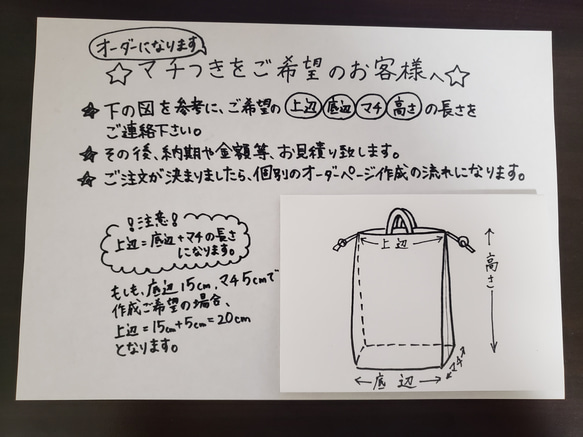 オーダーになります
☆マチつきをご希望のお客様へ☆
☆下の図を参考に、ご希望の上辺 底辺 マチ 高さの長さを
ご連絡下さい。
☆その後、納期や金額等、お見積り致します。
☆ご注文が決まりましたら、個別のオーダーページ作成の流れになります。
!注意!
上辺=底辺+マチの長さ
になります。
もしも、底辺15cm、マチ5cmで
作成ご希望の場合、
上辺=15cm+5cm=20cm
となります。
←上辺→
←高さ→
←マチ→
←底辺→